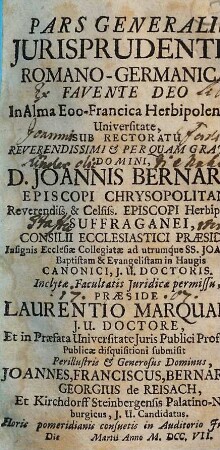 PARS GENERALI
JURISPRUDENTI
ROMANO-GERMANIC
Ex FAVENTE DEO
In Alma Eoo-Francica Herbipolen
Universitate,
Joannis SUB RECTORATU
REVERENDISSIMI & PERQUAM GRAT
DOMINI,
D. JOANNIS BERNAR
EPISCOPI CHRYSOPOLITAN
Reverendiss, & Celsiss. EPISCOPI Herbip
SUFFRAGANEI,
CONSILII ECCLESIASTICI PRÆSID
Insignis Ecclesiæ Collegiatæ ad utrumque SS. JOA
Baptistam & Evangelistam in Haugis
CANONICI, J. U. DOCTORIS.
Inclytæ, Facultatis Juridicæ permissu,
17. PRÆSIDE 07.
LAURENTIO MARQUAR
J. U. DOCTORE,
Et in Præfata Universitate Juris Publici Prof
Publicæ disquisitioni submisit
Perillustris & Generosus Dominus,
JOANNES, FRANCISCUS, BERNAR
GEORGIUS de REISACH,
Et Kirchdorff Steinbergensis Palatino-N
burgicus, J. U. Candidatus.
Horis pomeridianis consuetis in Auditorio Jur
Die Martii Anno M. DCC, VII.